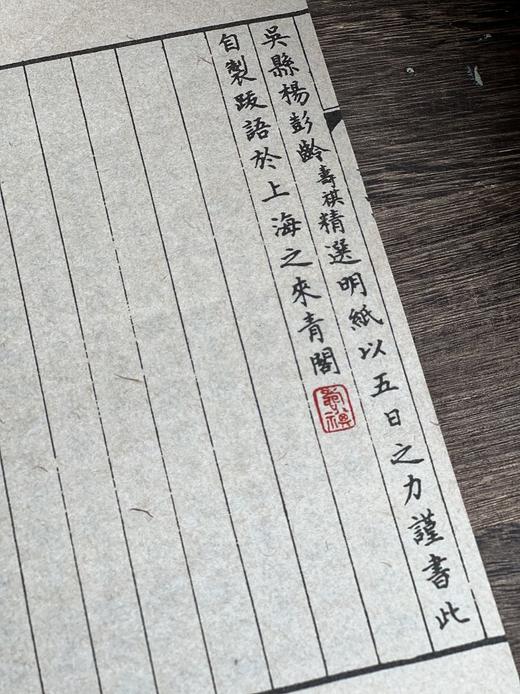 吳縣楊彭齡壽祺精選明紙以五日之力謹書此
自製跋語於上海之來青閣
壽祺